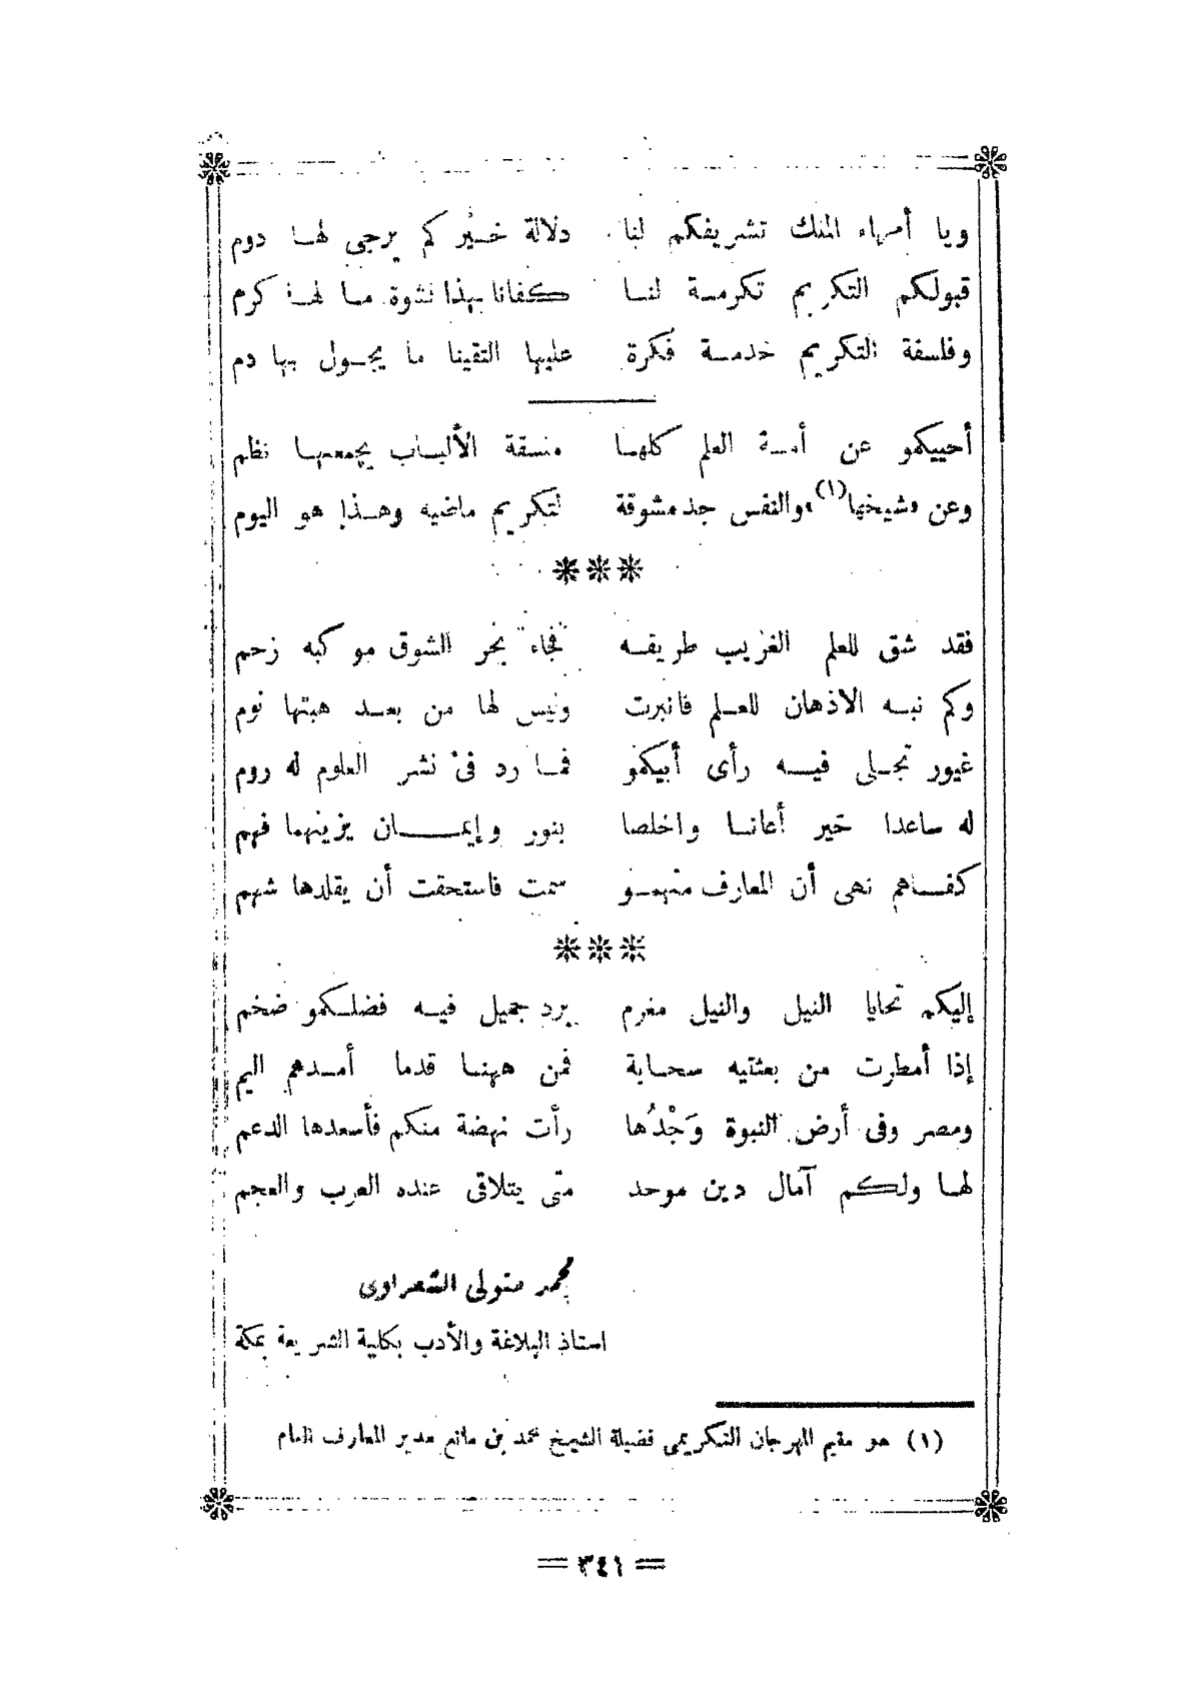 ويا أمراء الملك تشريفكم لنا دلالة خير كم يرجى لها دوم
قبولكم التكريم تكرمة لنا كفانا بهذا نشوة ما لها كرم
وفلسفة التكريم خدمة فكرة عليها التقينا ما يجول بها دم
أحييكمو عن أمة العلم كلها منسقة الألباب يجمعها نظم
وعن «شيخها(١)» والنفس جد مشوقة لتكريم ماضيه وهذا هو اليوم
***
فقد شق للعلم الغريب طريقه فجاء بحر الشوق موكبه زحم
وكم نبه الاذهان للعلم فانبرت وليس لها من بعد هبتها نوم
غيور تجلى فيه رأى أبيكمو فما رد فى نشر العلوم له روم
له ساعدا خير أعانا واخلصا بنور وإيمان يزينهما فهم
كفاهم نهى أن المعارف منهمو سمت فاستحقت أن يقلدها شهم
***
إليكم تحايا النيل والنيل مغرم يرد جميل فيه فضلكمو ضخم
إذا أمطرت من بعثتيه سحابة فمن ههنا قدما أمدهم اليم
ومصر وفى أرض النبوة وَجْدُها رأت نهضة منكم فأسعدها الدعم
لها ولكم آمال دين موحد متى يتلاقى عنده العرب والعجم
محمد متولى الشعراوى
استاذ البلاغة والأدب بكلية الشريعة بمكة
(١) هو مقيم المهرجان التكريمى فضيلة الشيخ محمد بن مانع مدير المعارف العام
= ٣٤١ =